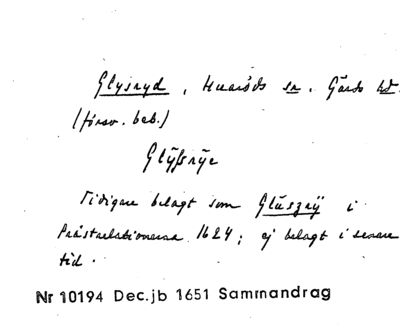 Glysryd, Huaröds sn. Gärds hd.
(försv. beb.)
Glÿssrÿe
Tidigare belagt som Glüszrÿ i
Prästrelationerna 1624; ej belagt i senare
tid.
Nr 10194 Dec.jb 1651 Sammandrag